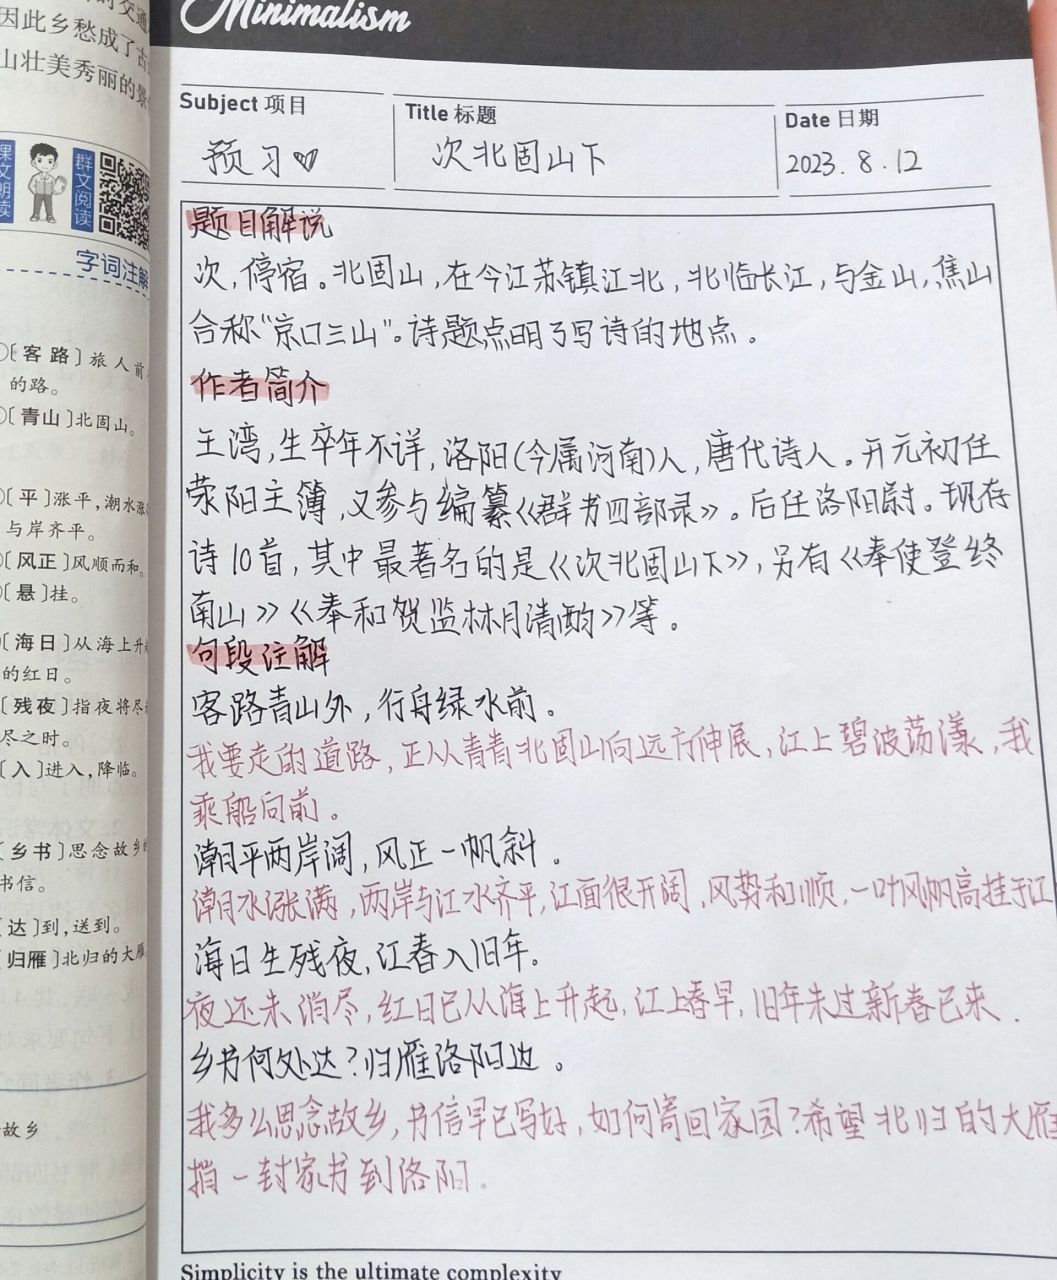 的交通
因此乡愁成了古
山壮美秀丽的景
课文朗读
群文阅读
字词注解
〔客路〕旅人前
的路。
〔青山〕北固山。
〔平〕涨平,潮水涨
与岸齐平。
〔风正〕风顺而和。
〔悬〕挂。
〔海日〕从海上升
的红日。
〔残夜〕指夜将尽
尽之时。
〔入〕进入,降临。
〔乡书〕思念故乡
书信。
〔达〕到,送到。
〔归雁〕北归的大雁
故乡
Minimalism
Subject 项目
预习
Title 标题
次北固山下
Date 日期
2023.8.12
题目解说
次,停宿。北固山,在今江苏镇江北,北临长江,与金山,焦山
合称“京口三山”。诗题点明了写诗的地点。
作者简介
王湾,生卒年不详,洛阳(今属河南)人,唐代诗人。开元初任
荥阳主簿,又参与编纂《群书四部录》。后任洛阳尉。现存
诗10首,其中最著名的是《次北固山下》,另有《奉使登终
南山》《奉和贺监林月清酌》等。
句段注解
客路青山外,行舟绿水前。
我要走的道路,正从青青北固山向远方伸展,江上碧波荡漾,我
乘船向前。
潮平两岸阔,风正一帆斜。
潮水涨满,两岸与江水齐平,江面很开阔,风势和顺,一叶风帆高挂于江
海日生残夜,江春入旧年。
夜还未消尽,红日已从海上升起,江上春早,旧年未过新春已来.
乡书何处达?归雁洛阳边。
我多么思念故乡,书信早已写好,如何寄回家园?希望北归的大雁
捎一封家书到洛阳。
Simplicity is the ultimate complexity